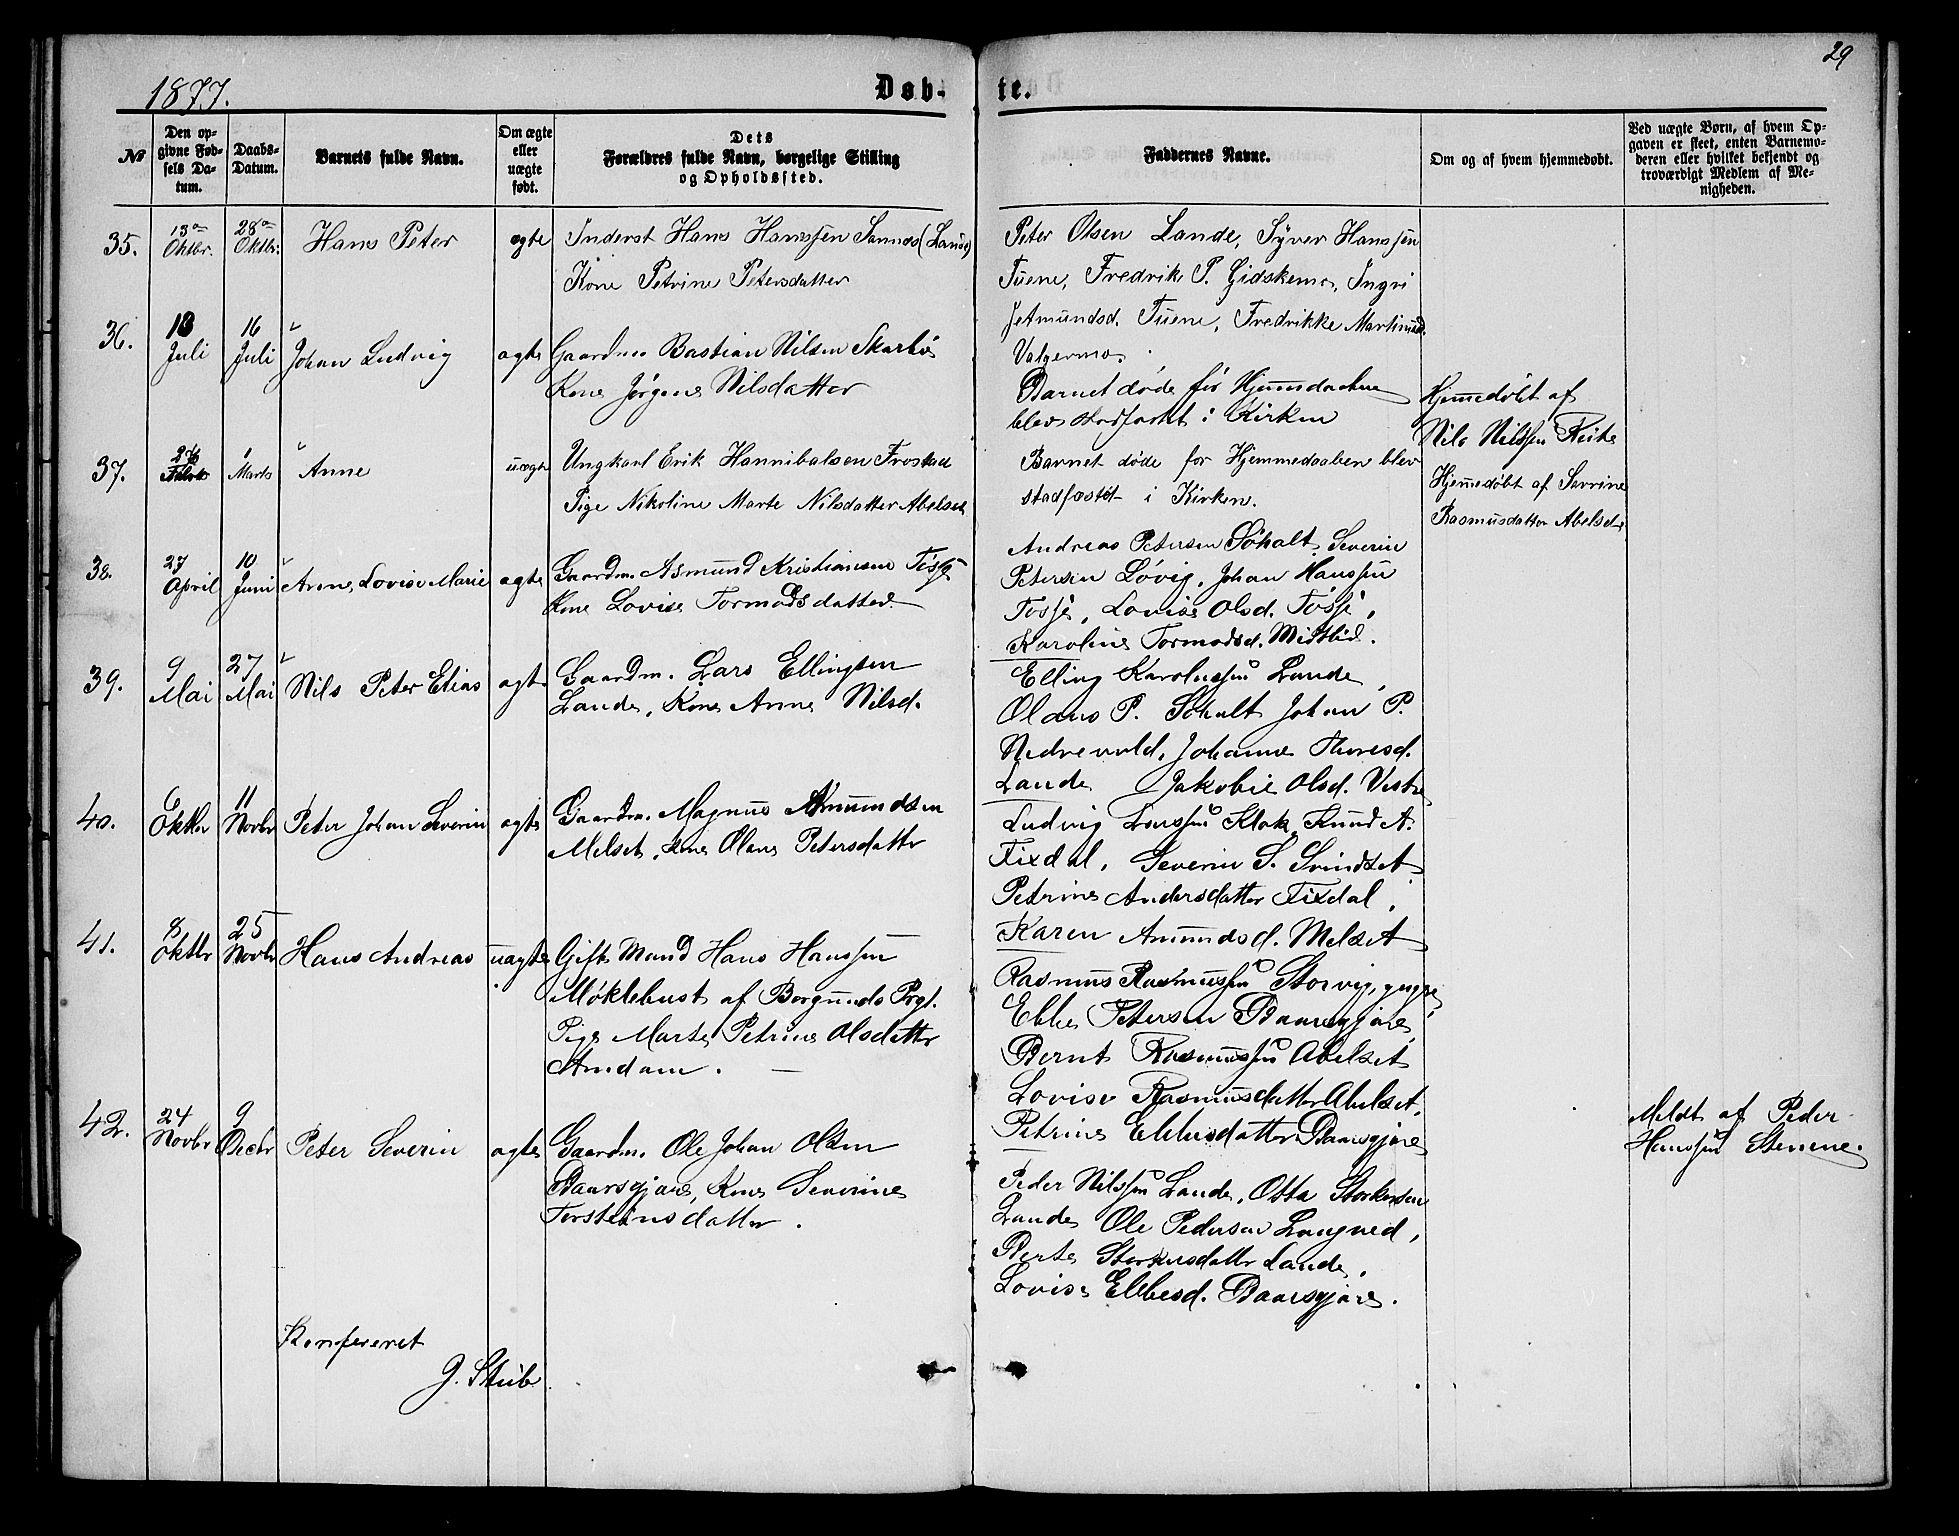 29
1877.
Døb-
te.
№
Den op-
givne Fød-
sels Da-
tum.
Daabs-
Datum.
Barnets fulde Navn.
Om ægte
eller
uægte
født.
Dets
Forældres fulde Navn, borgelige Stilling
og Opholdssted.
Faddernes Navne.
Om og af hvem hjemmedøbt.
Ved uægte Børn, af hvem Op-
gaven er skeet, enten Barnemo-
deren eller hvilket bekjendt og
troværdigt Medlem af Me-
nigheden.
35.
13de
Oktbr.
28de
Oktbr.
Hans Peter
ægte
Inderst Hans Hanssen
Kone Petrine Petersdatter
Peter Olsen Lande, Syver Hanssen
Tuene, Fredrik P. Gidskemo, Ingri
Tuene, Fredrikke
Valgermo.
36.
Juli
16
Juli
Johan Ludvig
ægte
Gaardm. Bastian Nilsen Skarbø
Kone Jørgine Nilsdatter
Barnet døde før Hjemmedaaben
blev stadfæstet i Kirken
Hjemmedøbt af
Nils Nilssen
37.
Marts
Anne
uægte
Ungkarl Erik Hannibalsen Frostad
Pige Nikoline Marte Nilsdatter Abelset
Barnet døde før Hjemmedaaben blev
stadfæstet i Kirken.
Hjemmedøbt af
Rasmusdatter Abelset
38.
27
April
10
Juni
Anne Lovise Marie
ægte
Gaardm. Asmund Kristiansen Tøsse
Kone Lovise Tormodsdatter
Andreas Petersen Søholt, Severin
Petersen Løvig, Johan Hanssen
Tøsse, Lovise Olsd. Tøsse,
Karoline Tormodsd. Midtlid.
39.
9
Mai
27
Mai
Nils Peter Elias
ægte
Gaardm. Lars Ellingsen
Lande, Kone Anne Nilsd.
Elling Karolussen Lande,
Olaus P. Søholt Johan P.
Johanne
Lande Jakobie Olsd. Vestre
40.
6
Oktbr
11
Novbr
Peter Johan Severin
ægte
Gaardm. Magnus Amundsen
Melset, Kone Olave Petersdatter
Ludvig Larssen Klok, Knud A.
Fixdal, Severin S. Svindset
Petrine Andersdatter Fixdal,
Karen Amundsd. Melset
41.
8
Oktbr
25
Novbr
Hans Andreas
uægte
Gift Mand Hans Hanssen
Møklebust af Borgunds Prgl.
Pige Marte Petrine Olsdatter
Amdam.
Rasmus Rasmussen Storvig, yngre,
Ebbe Petersen Baarsgjære,
Bernt Rasmussen Abelset
Lovise Rasmusdatter Abelset,
Petrine Ebbesdatter Baarsgjære
42.
24
Novbr
9
Decbr
Peter Severin
ægte
Gaardm. Ole Johan Olsen
Baarsgjære, Kone Severine
Torsteinsdatter.
Peder Nilssen Lande, Otta Storkersen
Lande Ole Pedersen Langved,
Berte Storkersdatter Lande,
Lovise Ebbesd. Baarsgjære.
Meldt af Peder
Hanssen Stenene.
Konfereret
J. Stub